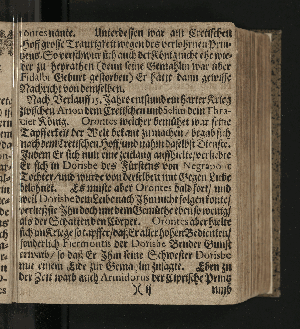 nante. Unterdessen war am Cretischen
Hoff grosse Traurigkeit wegen des verlohrnen Prin-
tzens. So verschwur sich auch der König nicht ehe wie-
der zu heyrathen (denn seine Gemahlin war über
Fidalbi Geburt gestorben) Er hätte dann gewisse
Nachricht von demselben.
Nach Verlauff 15. Jahre entstund ein harter Krieg
zwischen dem Cretischen und dem Thra-
cier König. Orontes welcher bemühet war seine
Tapfferkeit der Welt bekant zu machen / begab sich
nach dem Cretischen Hoff / und nahm daselbst Dienste.
Indem Er sich nun eine zeitlang auffhielte / verliebte
Er sich in Dorisbe des Fürstens von Negroponte
Tochter / und wurde von derselben mit Gegen Liebe
belohnet. Es muste aber Orontes bald fort / und
weil Dorisbe dem Leibe nach Ihm nicht folgen konte /
vergnügte Ihn doch mit dem Gemüthe ebenso wenig
als der Schatten dem Cörper. Orontes aber hielte
sich im Kriege so tapffer / daß Er aller hohen Bedienten /
sonderlich Fiermontis der Dorisbe Bruder Gunst
erwarb / so daß Er Ihm seine Schwester Dorisbe
mit einem Eide zur Gemahlin zusagte. Eben zu
der Zeit ward auch Armidorus der Ciprische Printz
)( ij